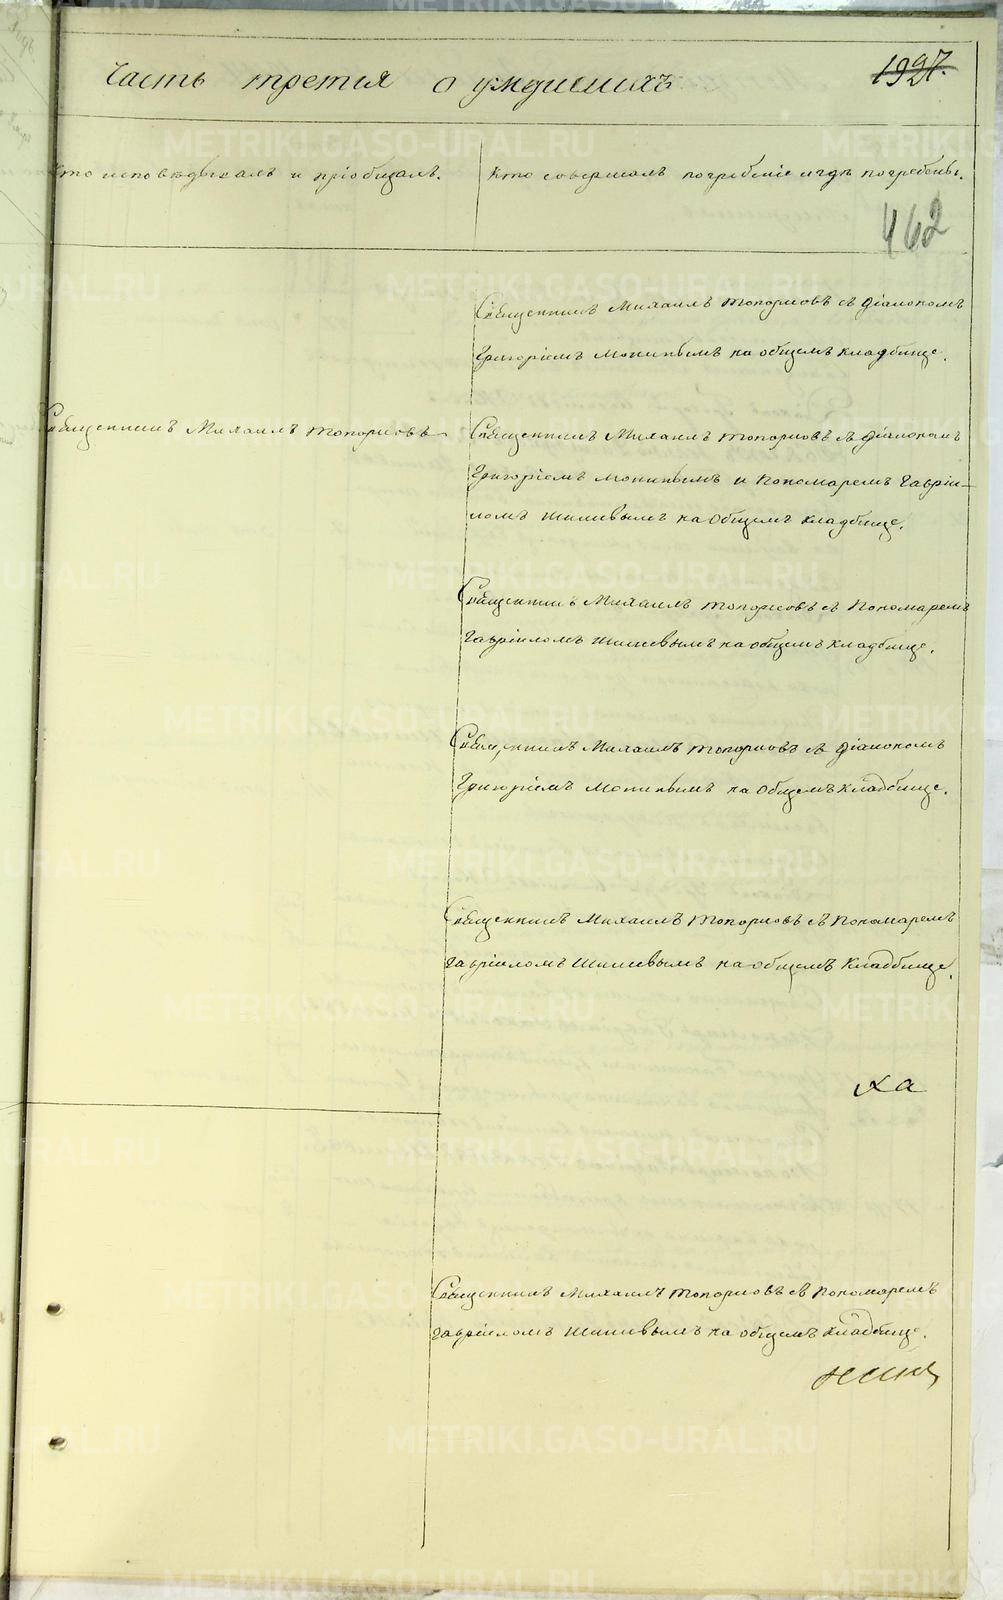 Часть третья о умершихъ
1927.
Кто исповѣдывалъ и пріобщалъ.
Кто совершалъ погребеніе и гдѣ погребены.
462
Священникъ Михаилъ Топорковъ съ Діакономъ
Григоріемъ на общемъ кладбище.
Священникъ Михаилъ Топорковъ
Священникъ Михаилъ Топорковъ съ Діакономъ
Григоріемъ и Пономаремъ Гавріи-
ломъ на общемъ кладбище.
Священникъ Михаилъ Топорковъ съ Пономаремъ
Гавріиломъ на общемъ кладбище.
Священникъ Михаилъ Топорковъ съ Діакономъ
Григоріемъ на общемъ кладбище.
Священникъ Михаилъ Топорковъ съ Пономаремъ
Гавріиломъ на общемъ кладбище.
ха
Священникъ Михаилъ Топорковъ съ Пономаремъ
Гавріиломъ на общемъ кладбище.
METRIKI.GASO-URAL.RU